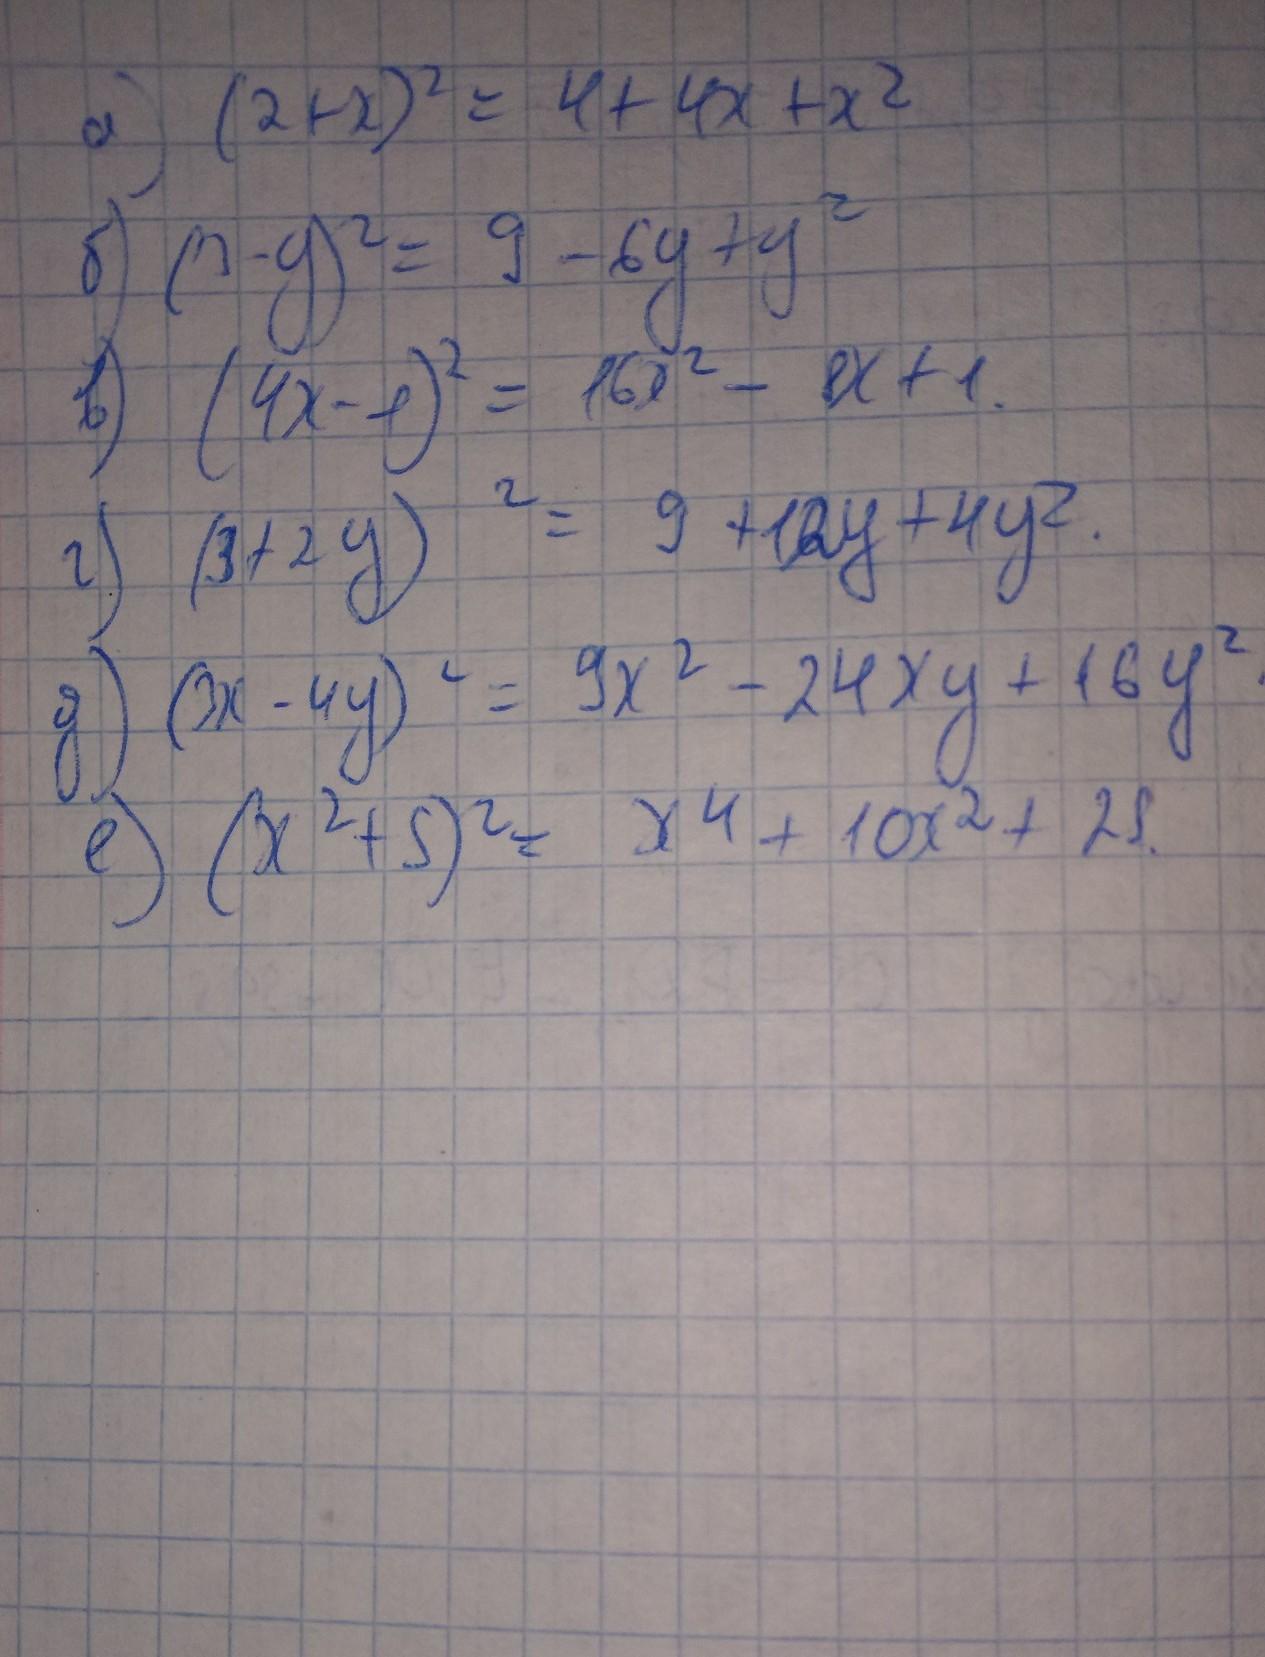 а) (2+x)² = 4 + 4x + x²
б) (3-y)² = 9 - 6y + y²
в) (4x-1)² = 16x² - 8x + 1.
г) (3+2y)² = 9 + 12y + 4y².
д) (3x - 4y)² = 9x² - 24xy + 16y².
е) (x²+5)² = x⁴ + 10x² + 25.